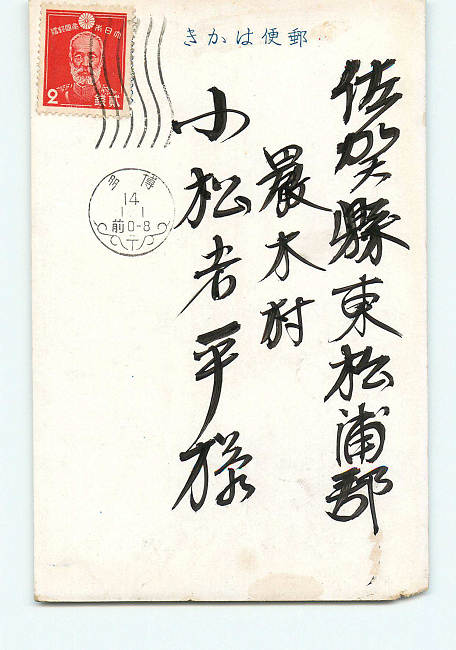 郵便はかき
大日本帝國郵便
2
貳錢
博多
14
1 1
前0-8
佐賀縣東松浦郡
嚴木村
小松 平樣